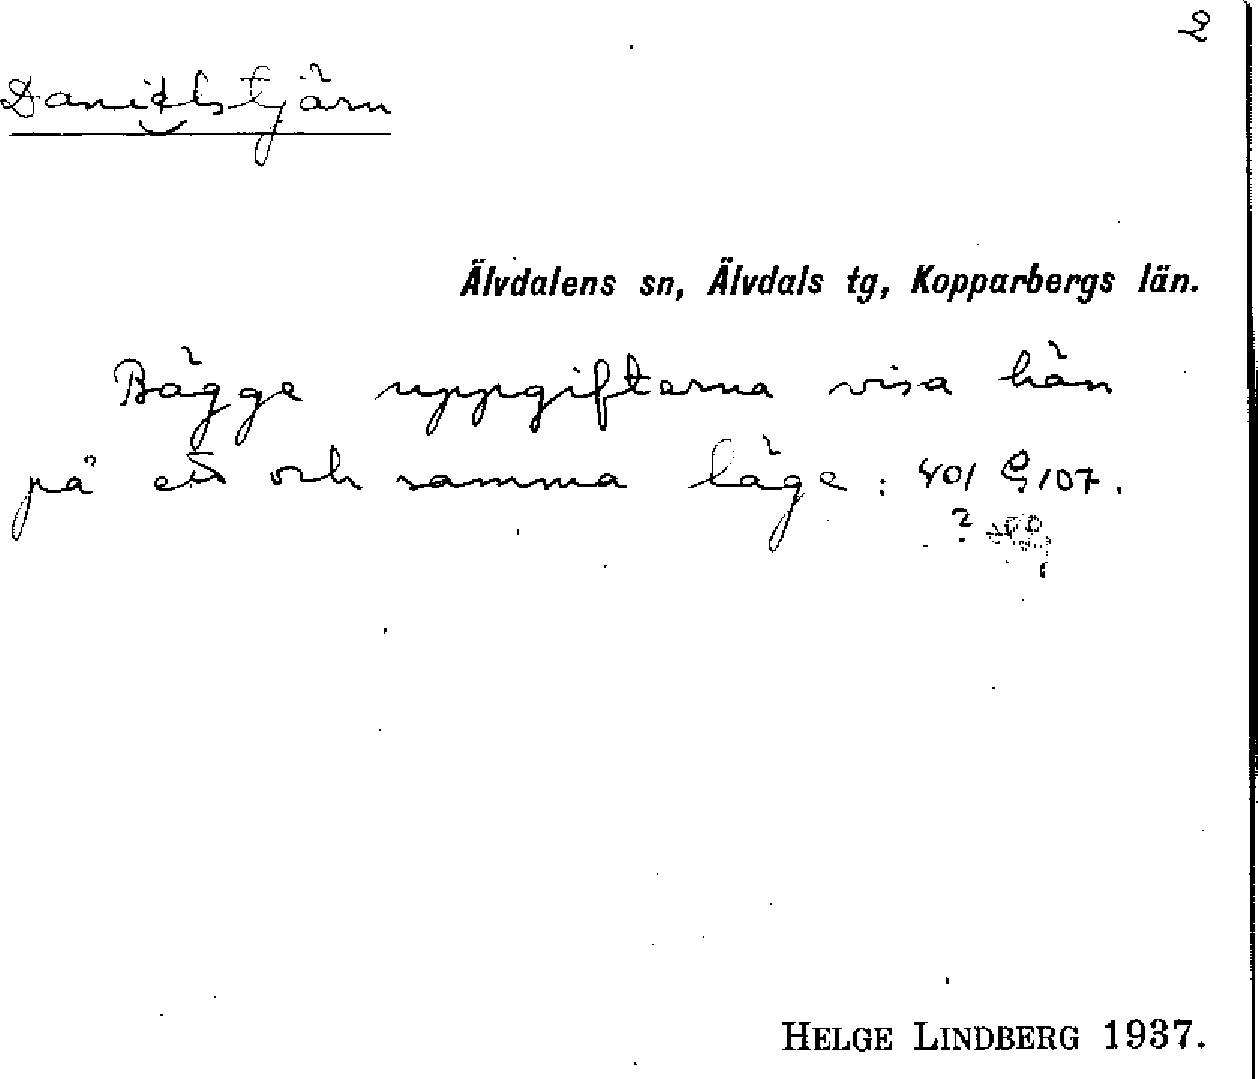 2
Danielstjärn
Älvdalens sn, Älvdals tg, Kopparbergs län.
Bägge uppgifterna visa hän
på ett och samma läge: 401 107.
?
HELGE LINDBERG 1937.